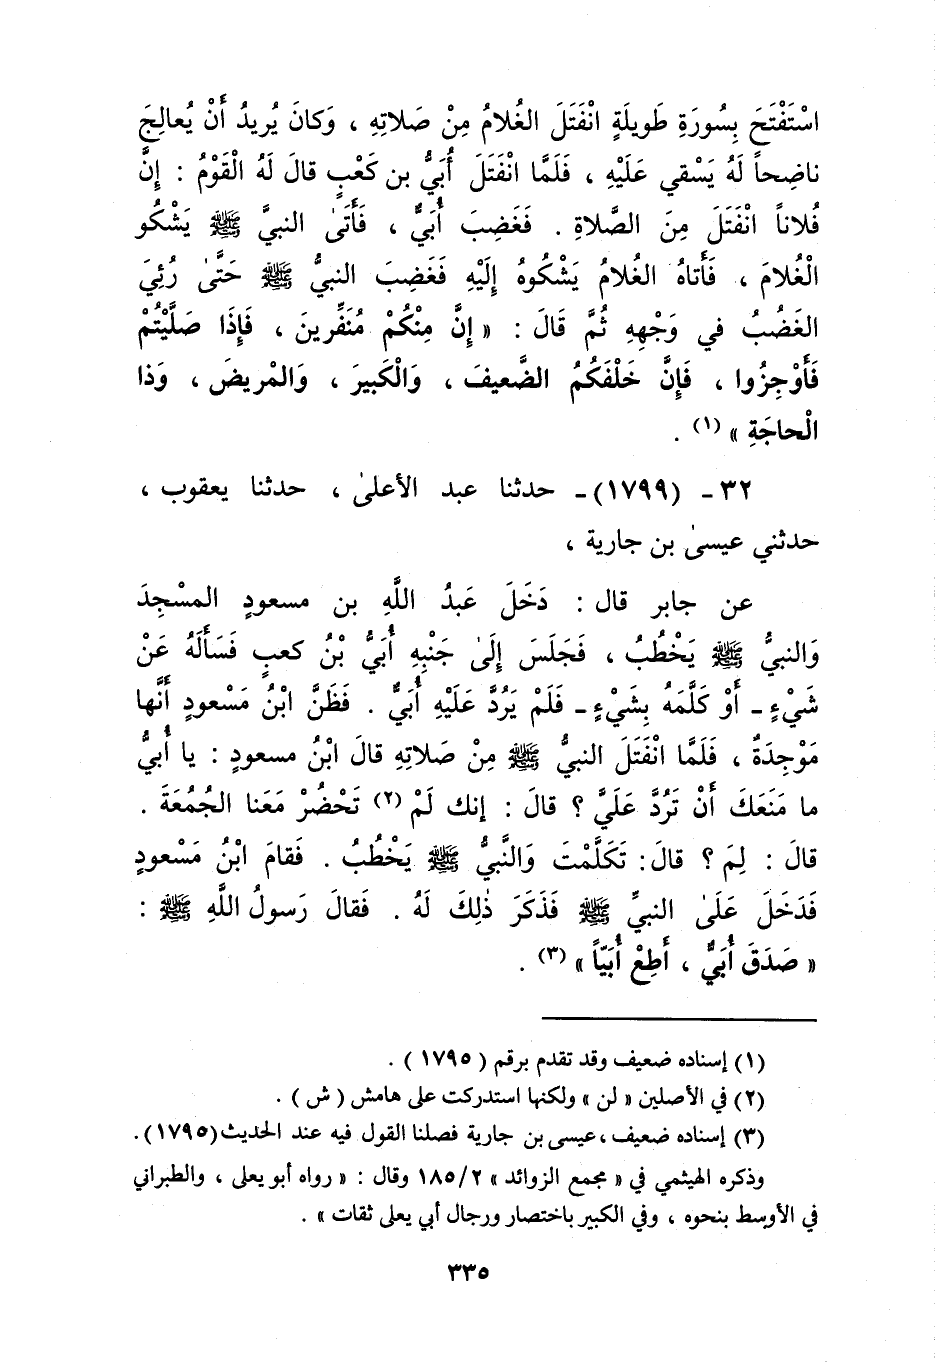 اسْتَفْتَحَ بِسُورَةِ طَويلَةٍ انْفَتَلَ الغُلامُ مِنْ صَلاتِهِ ، وَكانَ يُريدُ أَنْ يُعالِجَ
ناضِحاً لَهُ يَسْقي عَلَيْهِ ، فَلَمَّا انْفَتَلَ أُبَيُّ بن كَعْبٍ قالَ لَهُ الْقَوْمُ : إِنَّ
فُلاناً انْفَتَلَ مِنَ الصَّلاةِ . فَغَضِبَ أُبَيٌّ ، فَأَتىٰ النبيَّ ﷺ يَشْكُو
الْغُلامَ ، فَأَتاهُ الغُلامُ يَشْكُوهُ إِلَيْهِ فَغَضِبَ النبيُّ ﷺ حَتَّىٰ رُئِيَ
الغَضُبُ في وَجْهِهِ ثُمَّ قَالَ : « إِنَّ مِنْكُمْ مُنَفِّرينَ ، فَإِذَا صَلَّيْتُمْ
فَأَوْجِزُوا ، فَإِنَّ خَلْفَكُمُ الضَّعيفَ ، وَالْكَبيرَ ، وَالمْريضَ ، وَذا
الْحاجَةِ » (١) .
٣٢ - (١٧٩٩) - حدثنا عبد الأعلىٰ ، حدثنا يعقوب ،
حدثني عيسىٰ بن جارية ،
عن جابر قال : دَخَلَ عَبدُ اللَّهِ بن مسعودٍ المسْجِدَ
وَالنبيُّ ﷺ يَخْطُبُ ، فَجَلَسَ إِلَىٰ جَنْبِهِ أُبَيُّ بْنُ كعبٍ فَسَأَلَهُ عَنْ
شَيْءٍ - أَوْ كَلَّمَهُ بِشَيْءٍ - فَلَمْ يَرُدَّ عَلَيْهِ أُبَيٌّ . فَظَنَّ ابْنُ مَسْعودٍ أَنَّها
مَوْجِدَةٌ ، فَلَمَّا انْفَتَلَ النبيُّ ﷺ مِنْ صَلاتِهِ قالَ ابْنُ مسعودٍ : يا أُبيُّ
ما مَنَعَكَ أَنْ تَرُدَّ عَلَيَّ ؟ قالَ : إنك لَمْ (٢) تَحْضُرْ مَعَنا الجُمُعَةَ .
قالَ : لِمَ ؟ قالَ : تَكَلَّمْتَ وَالنَّبيُّ ﷺ يَخْطُبُ . فَقامَ ابْنُ مَسْعودٍ
فَدَخَلَ عَلَىٰ النبيِّ ﷺ فَذَكَرَ ذٰلِكَ لَهُ . فَقالَ رَسولُ اللَّهِ ﷺ :
« صَدَقَ أُبَيٌّ ، أَطِعْ أُبَيّاً » (٣) .
(١) إسناده ضعيف وقد تقدم برقم ( ١٧٩٥ ) .
(٢) في الأصلين « لن » ولكنها استدركت على هامش ( ش ) .
(٣) إسناده ضعيف ، عيسى بن جارية فصلنا القول فيه عند الحديث (١٧٩٥) .
وذكره الهيثمي في « مجمع الزوائد » ١٨٥/٢ وقال : « رواه أبو يعلى ، والطبراني
في الأوسط بنحوه ، وفي الكبير باختصار ورجال أبي يعلى ثقات » .
٣٣٥